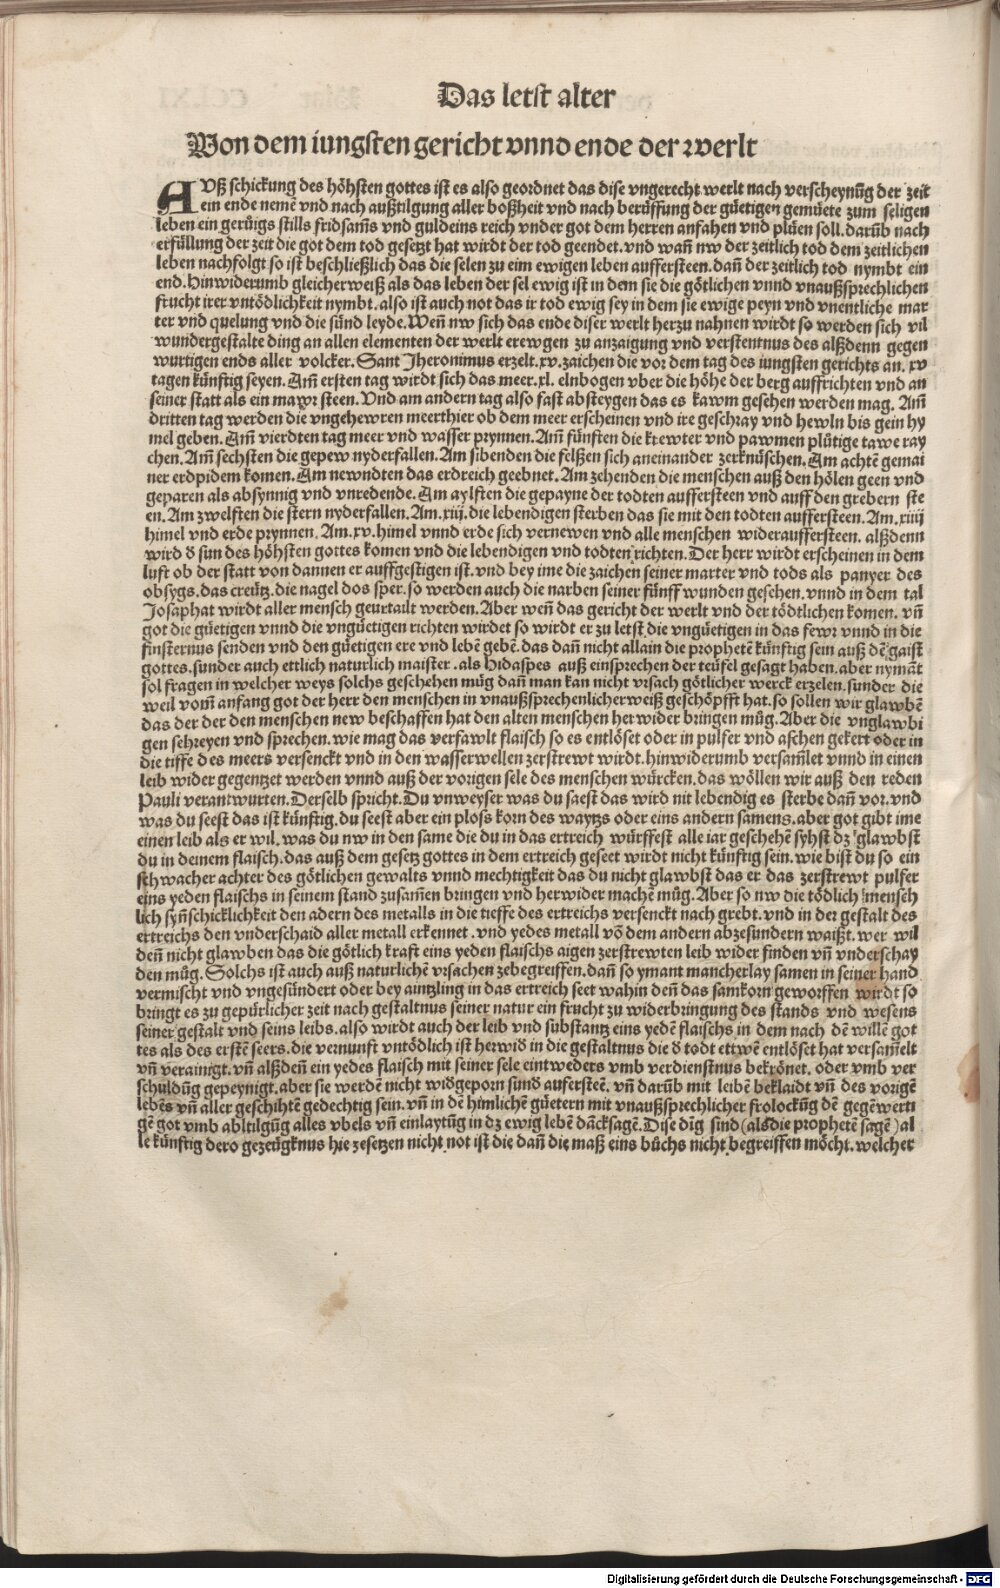 Das letst alter
Von dem iungsten gericht vnnd ende der werlt
AVß schickung des höhsten gottes ist es also geordnet das dise vngerecht werlt nach verscheynūg der zeit
ein ende nemē vnd nach außtilgung aller boßheit vnd nach berüffung der gůetigen gemůete zum seligen
leben ein gerůigs stills fridsam̄s vnd guldeins reich vnder got dem herren anfahen vnd plůen soll. darūb nach
erfüllung der zeit die got dem tod gesetzt hat wirdt der tod geendet. vnd wan̄ nw der zeitlich tod dem zeitlichen
leben nachfolgt so ist beschließlich das die selen zu eim ewigen leben auffersteen. dan̄ der zeitlich tod nymbt ein
end. Hinwiderumb gleicherweiß als das leben der sel ewig ist in dem sie die götlichen vnnd vnaußsprechlichen
frucht irer vntödlichkeit nymbt. also ist auch not das ir tod ewig sey in dem sie ewige peyn vnd vnentliche mar
ter vnd quelung vnd die sünd leyde. Wen̄ nw sich das ende diser werlt herzu nahnen wirdt so werden sich vil
wundergestalte ding an allen elementen der werlt erewgen zu anzaigung vnd verstentnus des alßdenn gegen
wurtigen ends aller volcker. Sant Jheronimus erzelt. xv. zaichen die vor dem tag des iungsten gerichts an. xv
tagen künftig seyen. Am̄ ersten tag wirdt sich das meer. xl. elnbogen vber die höhe der berg auffrichten vnd an
seiner statt als ein mawr steen. Vnd am andern tag also fast absteygen das es kawm gesehen werden mag. Am̄
dritten tag werden die vngehewren meerthier ob dem meer erscheinen vnd ire geschray vnd hewln bis gein hy
mel geben. Am̄ vierdten tag meer vnd wasser prynnen. Am̄ fünften die krewter vnd pawmen plütige tawe ray
chen. Am̄ sechsten die gepew nyderfallen. Am sibenden die felßen sich aneinander zerknüschen. Am achtē gemai
ner erdpidem komen. Am newndten das erdreich geebnet. Am zehenden die menschen auß den hölen geen vnd
geparen als absynnig vnd vnredende. Am aylften die gepayne der todten auffersteen vnd auff den grebern ste
en. Am zwelften die stern nyderfallen. Am. xiij. die lebendigen sterben das sie mit den todten auffersteen. Am. xiiij
himel vnd erde prynnen. Am. xv. himel vnnd erde sich vernewen vnd alle menschen widerauffersteen. alßdenn
wird d̕ sun des höhsten gottes komen vnd die lebendigen vnd todten richten. Der herr wirdt erscheinen in dem
luft ob der statt von dannen er auffgestigen ist. vnd bey ime die zaichen seiner marter vnd tods als panyer des
obsygs. das creütz. die nagel dos sper. so werden auch die narben seiner fünff wunden gesehen. vnnd in dem tal
Josaphat wirdt aller mensch geurtailt werden. Aber wen̄ das gericht der werlt vnd der tödtlichen komen. vn̄
got die gůetigen vnnd die vngůetigen richten wirdet so wirdt er zu letst die vngůetigen in das fewr vnnd in die
finsternus senden vnd den gůetigen ere vnd lebē gebē. das dan̄ nicht allain die prophetē künftig sein auß dē gaist
gottes. sunder auch ettlich naturlich maister. als Hidaspes auß einsprechen der teüfel gesagt haben. aber nymāt
sol fragen in welcher weys solchs geschehen müg dan̄ man kan nicht vrsach götlicher werck erzelen. sunder die
weil vom̄ anfang got der herr den menschen in vnaußsprechenlicher weiß geschöpfft hat. so sollen wir glawbē
das der der den menschen new beschaffen hat den alten menschen her wider bringen müg. Aber die vnglawbi
gen schreyen vnd sprechen. wie mag das verfawlt flaisch so es entlöset oder in pulfer vnd aschen gekert oder in
die tiffe des meers versenckt vnd in den wasserwellen zerstrewt wirdt. hinwiderumb versam̄let vnnd in einen
leib wider gegentzet werden vnnd auß der vorigen sele des menschen würcken. das wöllen wir auß den reden
Pauli verantwurten. Derselb spricht. Du vnweyser was du saest das wird nit lebendig es sterbe dan̄ vor. vnd
was du seest das ist künftig. du seest aber ein ploss korn des waytzs oder eins andern samens. aber got gibt ime
einen leib als er wil. was du nw in den same die du in das ertreich würffest alle iar geschehē syhst dz glawbst
du in deinem flaisch. das auß dem gesetz gottes in dem ertreich geseet wirdt nicht künftig sein. wie bist du so ein
schwacher achter des götlichen gewalts vnnd mechtigkeit das du nicht glawbst das er das zerstrewt pulfer
eins yeden flaischs in seinem stand zusam̄en bringen vnd herwider machē müg. Aber so nw die tödlich mensch
lich syn̄schicklichkeit den adern des metalls in die tieffe des ertreichs versenckt nach grebt. vnd in der gestalt des
ertreichs den vnderschaid aller metall erkennet. vnd yedes metall vō dem andern abzesundern waißt. wer wil
den̄ nicht glawben das die götlich kraft eins yeden flaischs aigen zerstrewten leib wider finden vn̄ vnderschay
den müg. Solchs ist auch auß naturlichē vrsachen zebegreiffen. dan̄ so ymant mancherlay samen in seiner hand
vermischt vnd vngesündert oder bey aintzling in das ertreich seet wahin den̄ das samkorn geworffen wirdt so
bringt es zu gepürlicher zeit nach gestaltnus seiner natur ein frucht zu widerbringung des stands vnd wesens
seiner gestalt vnd seins leibs. also wirdt auch der leib vnd substantz eins yedē flaischs in dem nach dē willē got
tes als des erstē seers. die vernunft vntödlich ist herwid̕ in die gestaltnus die d̕ todt ettwē entlöset hat versam̄elt
vn̄ verainigt. vn̄ alßdēn ein yedes flaisch mit seiner sele eintweders vmb verdienstnus bekrönet. oder vmb ver
schuldūg gepeynigt. aber sie werdē nicht wid̕geporn sund̕ aufersteē. vn̄ darūb mit leibē beklaidt vn̄ des vorigē
lebēs vn̄ aller geschihtē gedechtig sein. vn̄ in dē himlichē gůetern mit vnaußsprechlicher frolockūg dē gegēwerti
gē got vmb abtilgūg alles vbels vn̄ einlaytūg in dz ewig lebē dācksagē. Dise dīg sind (als die prophetē sagē) al
le künftig dero gezeügknus hie zesetzen nicht not ist die dan̄ die maß eins bůchs nicht begreiffen möcht. welcher
Digitalisierung gefördert durch die Deutsche Forschungsgemeinschaft - DFG